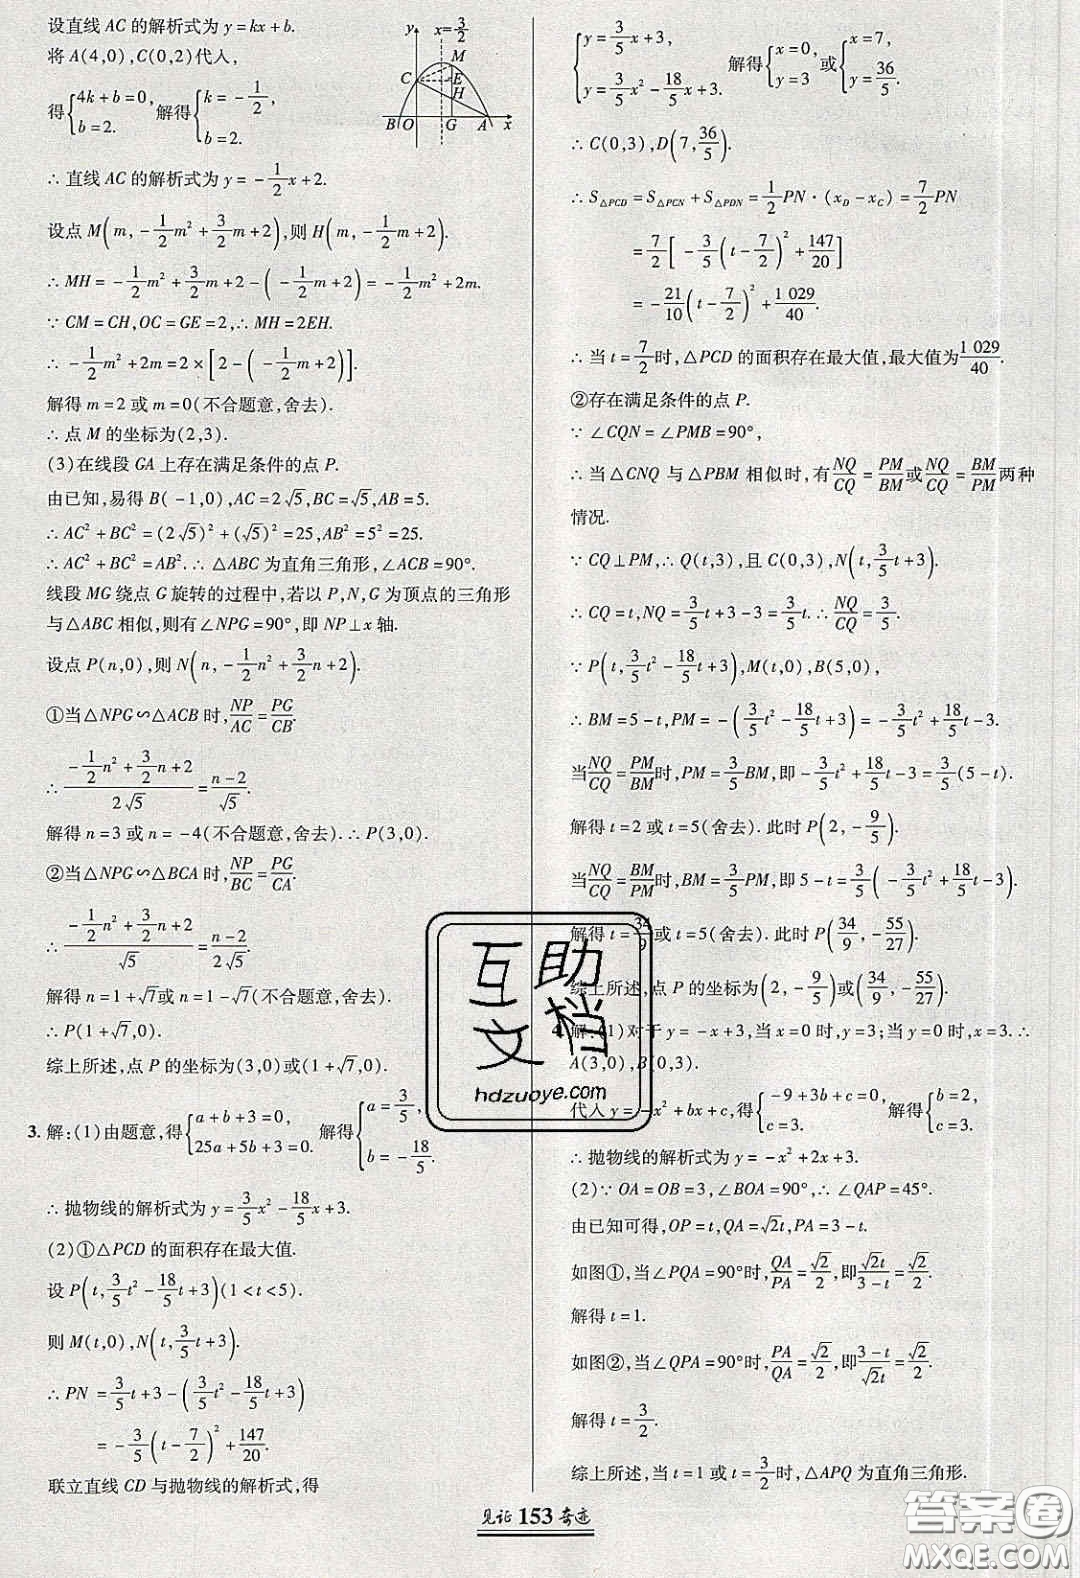 设直线 AC 的解析式为 y=kx+b.
将 A(4,0),C(0,2)代入,
得{4k+b=0, b=2. 解得{k=-1/2, b=2.
y x=3/2 M C E H B O G A x
∴直线 AC 的解析式为 y=-1/2x+2.
设点 M(m,-1/2m²+3/2m+2),则 H(m,-1/2m+2).
∴MH=-1/2m²+3/2m+2-(-1/2m+2)=-1/2m²+2m.
∵CM=CH,OC=GE=2,∴MH=2EH.
∴-1/2m²+2m=2×[2-(-1/2m+2)].
解得 m=2 或 m=0(不合题意,舍去).
∴点 M 的坐标为(2,3).
(3)在线段 GA 上存在满足条件的点 P.
由已知,易得 B(-1,0),AC=2√5,BC=√5,AB=5.
∴AC²+BC²=(2√5)²+(√5)²=25,AB²=5²=25.
∴AC²+BC²=AB².∴△ABC 为直角三角形,∠ACB=90°.
线段 MG 绕点 G 旋转的过程中,若以 P,N,G 为顶点的三角形
与△ABC 相似,则有∠NPG=90°,即 NP⊥x 轴.
设点 P(n,0),则 N(n,-1/2n²+3/2n+2).
①当△NPG∽△ACB 时,NP/AC=PG/CB.
∴(-1/2n²+3/2n+2)/2√5=(n-2)/√5.
解得 n=3 或 n=-4(不合题意,舍去).∴P(3,0).
②当△NPG∽△BCA 时,NP/BC=PG/CA.
∴(-1/2n²+3/2n+2)/√5=(n-2)/2√5.
解得 n=1+√7或 n=1-√7(不合题意,舍去).
∴P(1+√7,0).
综上所述,点 P 的坐标为(3,0)或(1+√7,0).
3. 解:(1)由题意,得{a+b+3=0, 25a+5b+3=0. 解得{a=3/5, b=-18/5.
∴抛物线的解析式为 y=3/5x²-18/5x+3.
(2)①△PCD 的面积存在最大值.
设 P(t,3/5t²-18/5t+3)(1<t<5).
则 M(t,0),N(t,3/5t+3).
∴PN=3/5t+3-(3/5t²-18/5t+3)
=-3/5(t-7/2)²+147/20.
联立直线 CD 与抛物线的解析式,得
{y=3/5x+3, y=3/5x²-18/5x+3. 解得{x=0, y=3 或{x=7, y=36/5.
∴C(0,3),D(7,36/5).
∴S△PCD=S△PCN+S△PDN=1/2PN·(xD-xC)=7/2PN
=7/2[-3/5(t-7/2)²+147/20]
=-21/10(t-7/2)²+1 029/40.
∴当 t=7/2时,△PCD 的面积存在最大值,最大值为1 029/40.
②存在满足条件的点 P.
∵∠CQN=∠PMB=90°,
∴当△CNQ 与△PBM 相似时,有NQ/CQ=PM/BM或NQ/CQ=BM/PM两种
情况.
∵CQ⊥PM,∴Q(t,3),且 C(0,3),N(t,3/5t+3).
∴CQ=t,NQ=3/5t+3-3=3/5t.∴NQ/CQ=3/5.
∵P(t,3/5t²-18/5t+3),M(t,0),B(5,0),
∴BM=5-t,PM=-(3/5t²-18/5t+3)=-3/5t²+18/5t-3.
当NQ/CQ=PM/BM时,PM=3/5BM,即-3/5t²+18/5t-3=3/5(5-t).
解得 t=2 或 t=5(舍去).此时 P(2,-9/5).
当NQ/CQ=BM/PM时,BM=3/5PM,即 5-t=3/5(-3/5t²+18/5t-3).
解得 t=34/9或 t=5(舍去).此时 P(34/9,-55/27).
综上所述,点 P 的坐标为(2,-9/5)或(34/9,-55/27).
4. 解:(1)对于 y=-x+3,当 x=0 时,y=3;当 y=0 时,x=3.∴
A(3,0),B(0,3).
代入 y=-x²+bx+c,得{-9+3b+c=0, c=3. 解得{b=2, c=3.
∴抛物线的解析式为 y=-x²+2x+3.
(2)∵OA=OB=3,∠BOA=90°,∴∠QAP=45°.
由已知可得,OP=t,QA=√2t,PA=3-t.
如图①,当∠PQA=90°时,QA/PA=√2/2,即√2t/(3-t)=√2/2.
解得 t=1.
如图②,当∠QPA=90°时,PA/QA=√2/2,即(3-t)/√2t=√2/2.
解得 t=3/2.
综上所述,当 t=1 或 t=3/2时,△APQ 为直角三角形.
见证 153 奇迹
互助文档
hdzuoye.com
答案圈
MXQE.COM